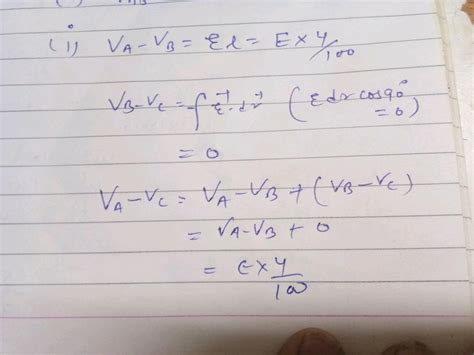 (i) VA - VB = El = E × 4/100
VB - VC = -∫ E⃗ . dr⃗ ( E dr cos 90° = 0 )
= 0
VA - VC = VA - VB + (VB - VC)
= VA - VB + 0
= E × 4/100